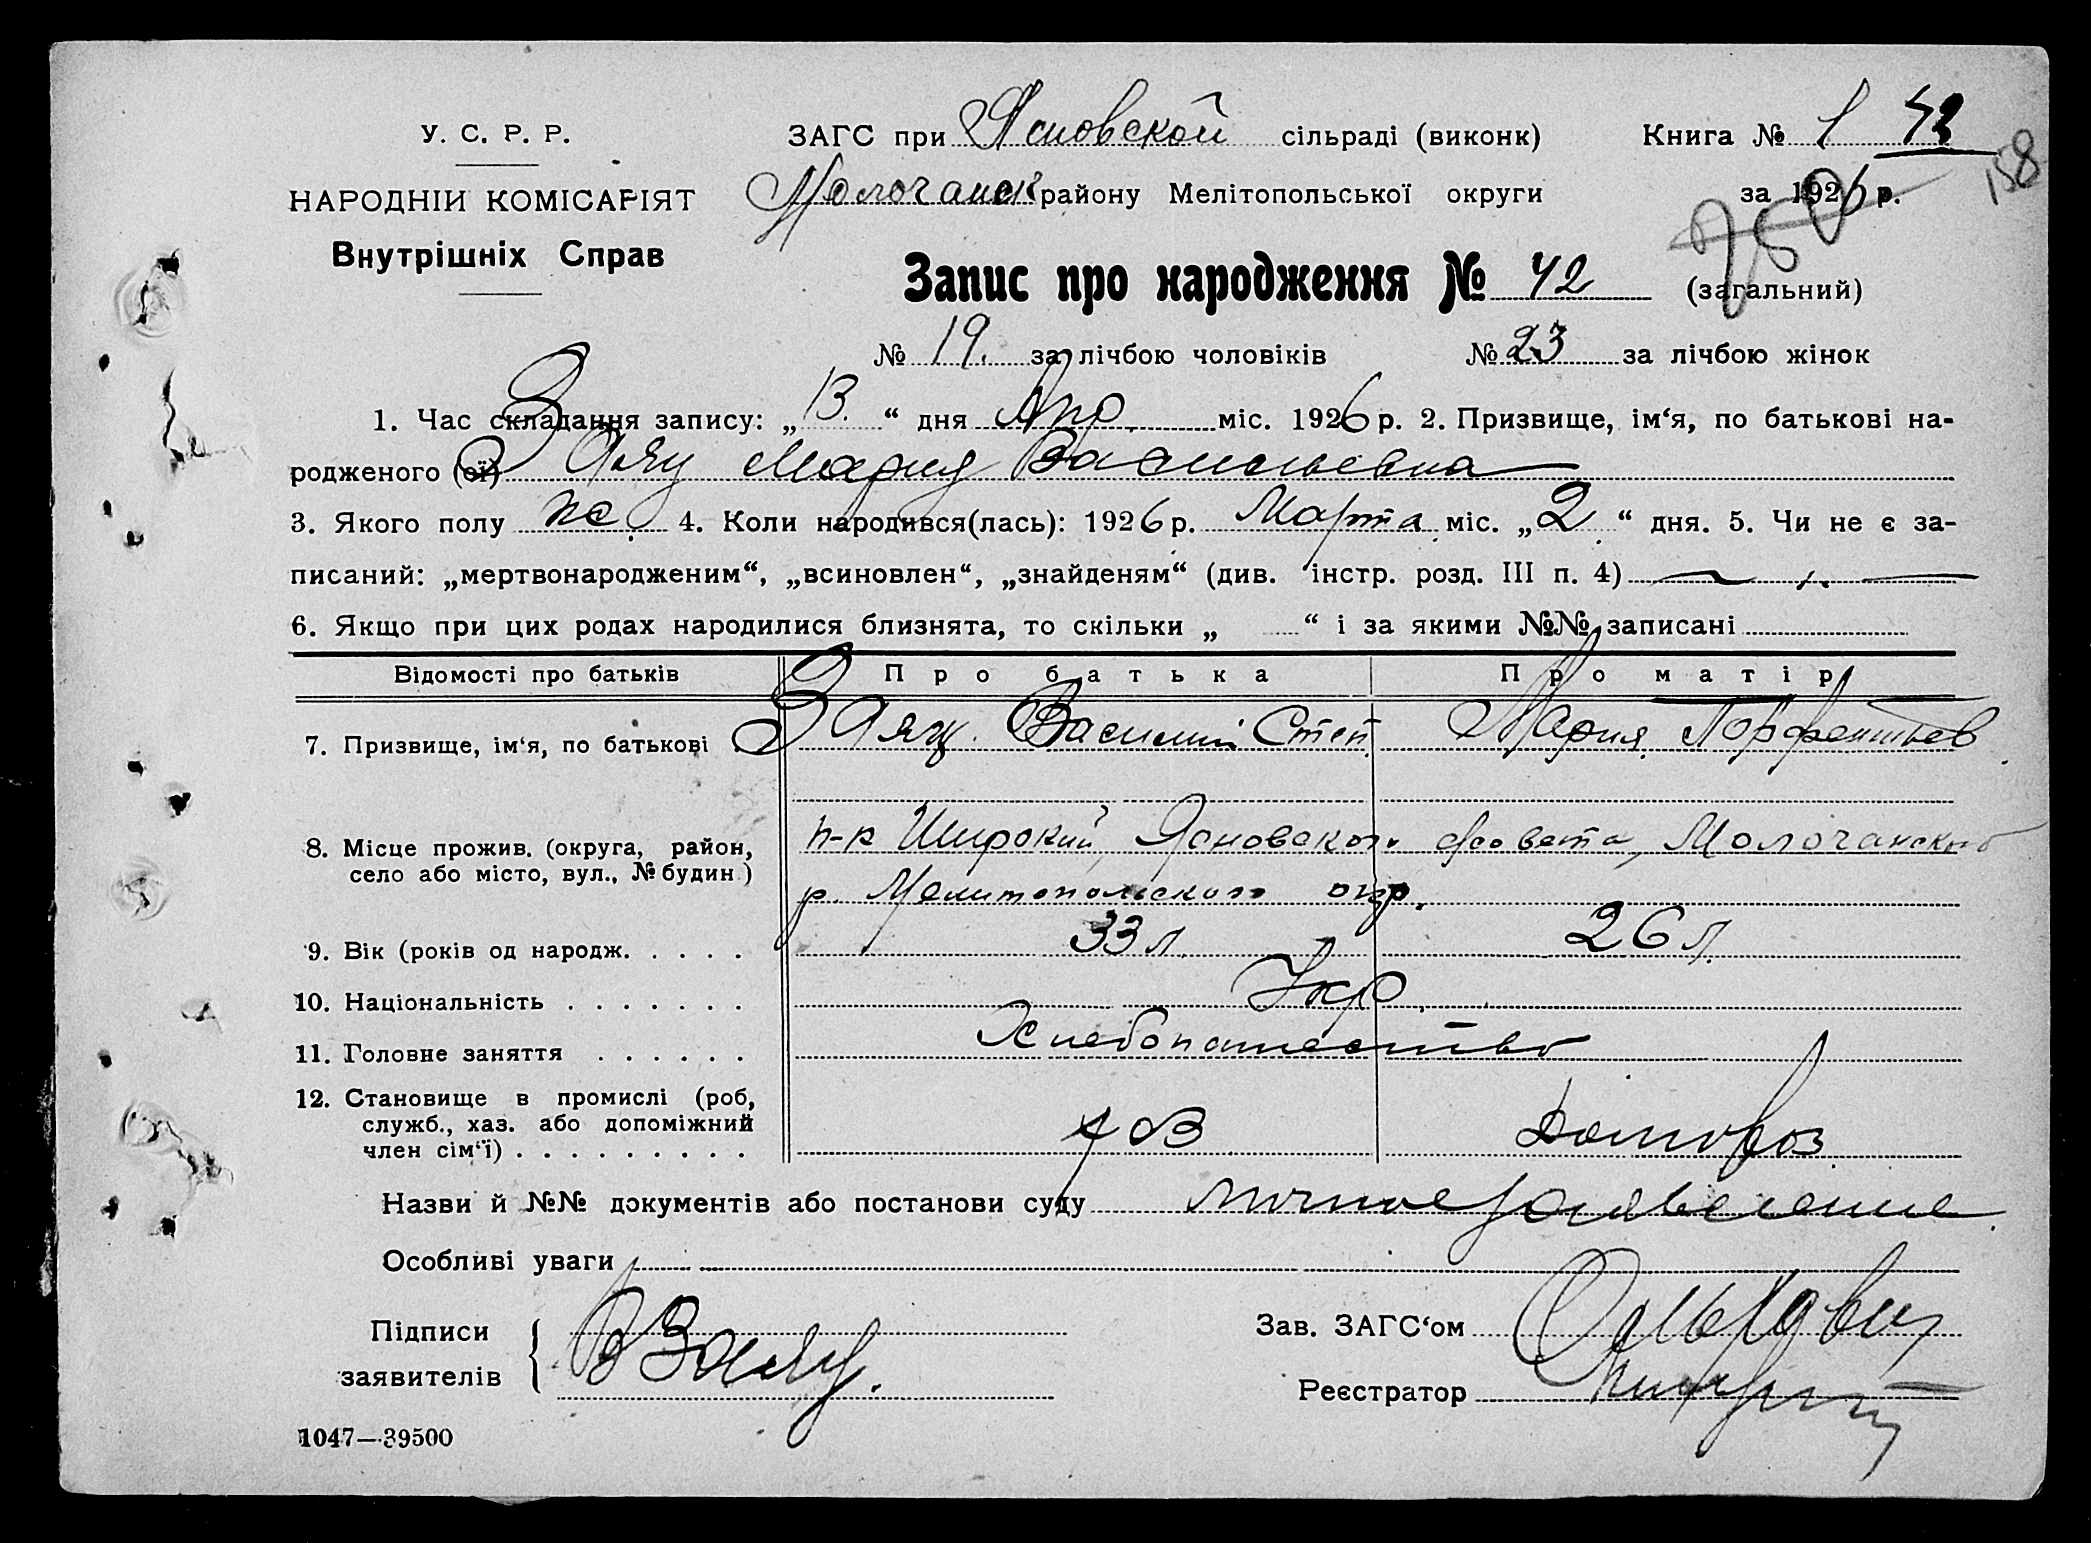 У. С. Р. Р.
НАРОДНІЙ КОМІСАРІЯТ
Внутрішніх Справ
ЗАГС при Ясновской сільраді (виконк) Книга № 1 42
158
Молочанск району Мелітопольської округи за 1926 р.
Запис про народження № 42 (загальний)
№ 19. за лічбою чоловіків № 23 за лічбою жінок
1. Час складання запису: „ 13. “ дня Апр. міс. 1926 р. 2. Призвище, ім‘я, по батькові на-
родженого (ої) Заяц Мария Васильевна
3. Якого полу 4. Коли народився(лась): 1926 р. Марта міс. „ 2 “ дня. 5. Чи не є за-
писаний: „мертвонародженим“, „всиновлен“, „знайденям“ (див. інстр. розд. III п. 4)
6. Якщо при цих родах народилися близнята, то скільки „ “ і за якими №№ записані
Відомості про батьків Про батька Про матір
7. Призвище, ім‘я, по батькові Заяц. Василий Степ. Мария Парфентьев
8. Місце прожив. (округа, район, село або місто, вул., № будин.) п-к Широкий, Ясновского с/совета, Молочанского
р. Мелитопольского окр.
9. Вік (років од народж. . . . . 33 л. 26 л.
10. Національність . . . . . . . Укр.
11. Головне заняття . . . . . . Хлебопашество
12. Становище в промислі (роб, служб., хаз. або допоміжний член сім‘ї) . . . . . . . . . Домохоз
Назви й №№ документів або постанови суду личное заявление
Особливі уваги
Підписи заявителів В Заяц.
Зав. ЗАГС‘ом
Реєстратор
1047—39500